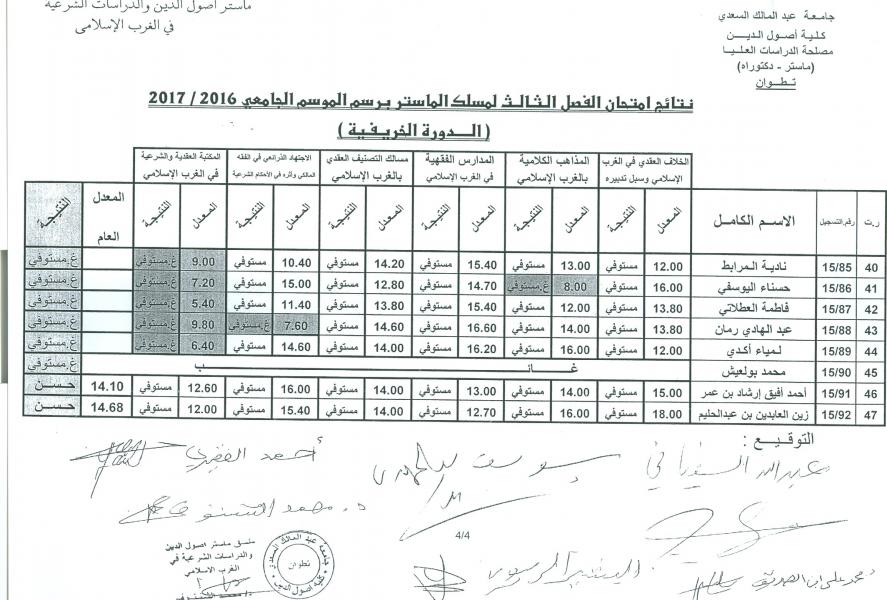 جامعة عبد المالك السعدي
كلية أصول الدين
مصلحة الدراسات العليا
(ماستر - دكتوراه)
تطوان
ماستر أصول الدين والدراسات الشرعية
في الغرب الإسلامي
نتائج امتحان الفصل الثالث لمسلك الماستر برسم الموسم الجامعي 2016 / 2017
( الدورة الخريفية )
الخلاف العقدي في الغرب الإسلامي وسبل تدبيره | المذاهب الكلامية بالغرب الإسلامي | المدارس الفقهية في الغرب الإسلامي | مسالك التصنيف العقدي بالغرب الإسلامي | الاجتهاد الذرائعي في الفقه المالكي وأثره في الأحكام الشرعية | المكتبة العقدية والشرعية في الغرب الإسلامي
ر.ت | رقم.التسجيل | الاسم الكامل | المعدل | النتيجة | المعدل | النتيجة | المعدل | النتيجة | المعدل | النتيجة | المعدل | النتيجة | المعدل | النتيجة | المعدل العام | النتيجة
40 | 15/85 | نادية المرابط | 12.00 | مستوفي | 13.00 | مستوفي | 15.40 | مستوفي | 14.20 | مستوفي | 10.40 | مستوفي | 9.00 | غ.مستوفي | غ.مستوفي
41 | 15/86 | حسناء اليوسفي | 16.00 | مستوفي | 8.00 | غ.مستوفي | 14.70 | مستوفي | 12.80 | مستوفي | 15.00 | مستوفي | 7.20 | غ.مستوفي | غ.مستوفي
42 | 15/87 | فاطمة العطلاتي | 13.80 | مستوفي | 12.00 | مستوفي | 15.40 | مستوفي | 13.80 | مستوفي | 11.40 | مستوفي | 5.40 | غ.مستوفي | غ.مستوفي
43 | 15/88 | عبد الهادي رمان | 13.80 | مستوفي | 14.00 | مستوفي | 16.60 | مستوفي | 14.60 | مستوفي | 7.60 | غ.مستوفي | 9.80 | غ.مستوفي | غ.مستوفي
44 | 15/89 | لمياء أكدي | 12.00 | مستوفي | 16.00 | مستوفي | 16.20 | مستوفي | 14.00 | مستوفي | 14.60 | مستوفي | 6.40 | غ.مستوفي | غ.مستوفي
45 | 15/90 | محمد بولعيش | غائب | غ.مستوفي
46 | 15/91 | أحمد أفيق إرشاد بن عمر | 15.00 | مستوفي | 14.00 | مستوفي | 13.00 | مستوفي | 14.00 | مستوفي | 16.00 | مستوفي | 12.60 | مستوفي | 14.10 | حسن
47 | 15/92 | زين العابدين بن عبدالحليم | 18.00 | مستوفي | 16.00 | مستوفي | 12.70 | مستوفي | 14.00 | مستوفي | 15.40 | مستوفي | 12.00 | مستوفي | 14.68 | حسن
التوقيع :
عبد الله
يوسف
أحمد
د. محمد
4/4
منسق ماستر أصول الدين
والدراسات الشرعية في
الغرب الإسلامي
جامعة عبد المالك السعدي
تطوان
كلية أصول الدين
محمد علي ابن الصديق
البشير